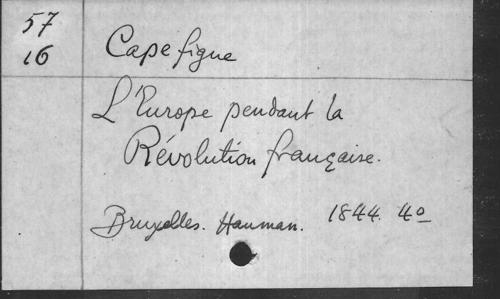 57
16
Capefigue
L'Europe pendant la
Révolution française.
Bruxelles. Hauman. 1844. 4o